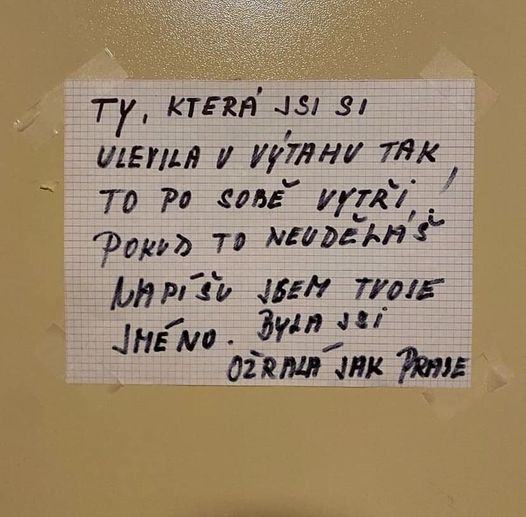 TY, KTERÁ JSI SI
ULEVILA V VÝTAHU TAK
TO PO SOBĚ VYTŘI!
POKUD TO NEUDĚLÁŠ
NAPÍŠU JSEM TVOJE
JMÉNO. BYLA JSI
OŽRALÁ JAK PRASE